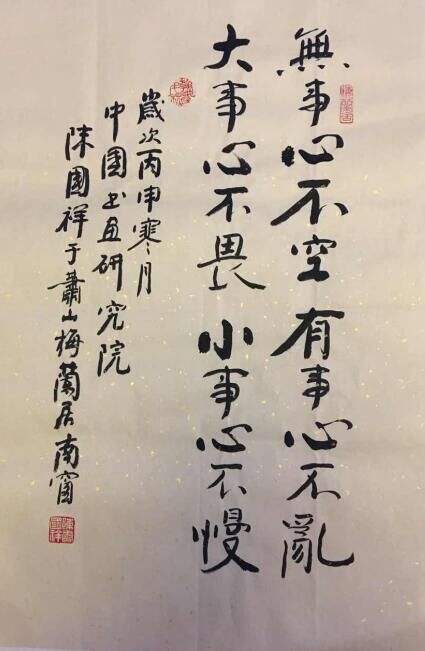 無事心不空 有事心不亂
大事心不畏 小事心不慢
歲次丙申寒月
中国书画研究院
陳國祥于蕭山梅蘭居南窗